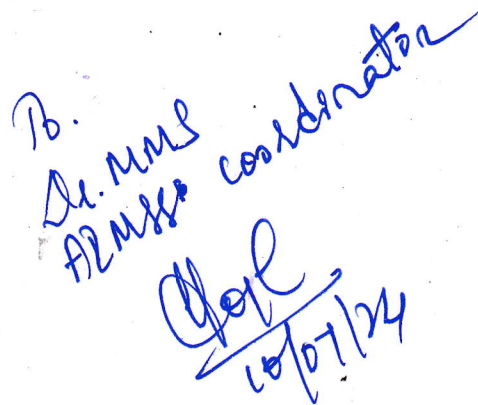 To.
Dr. MMS
coordinator
10/07/24